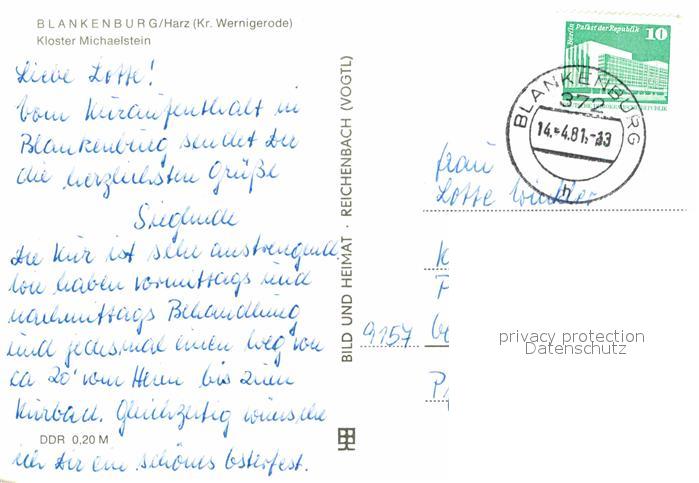 BLANKENBURG/Harz (Kr. Wernigerode)
Kloster Michaelstein
Liebe Lotte!
Vom Kuraufenthalt in
Blankenburg sendet Dir
die herzlichsten Grüße
Sieglinde
Die Kur ist sehr anstrengend.
Wir haben vormittags und
nachmittags Behandlung
und jedesmal einen Weg von
ca 20' vom Heim bis zum
Kurbad. Gleichzeitig wünsche
DDR 0,20 M
ich Dir ein schönes Osterfest.
BILD UND HEIMAT · REICHENBACH (VOGTL)
Berlin Palast der Republik
10
BLANKENBURG
372
14.-4.81.-13
h
Frau
Lotte Winkler
9157
privacy protection
Datenschutz